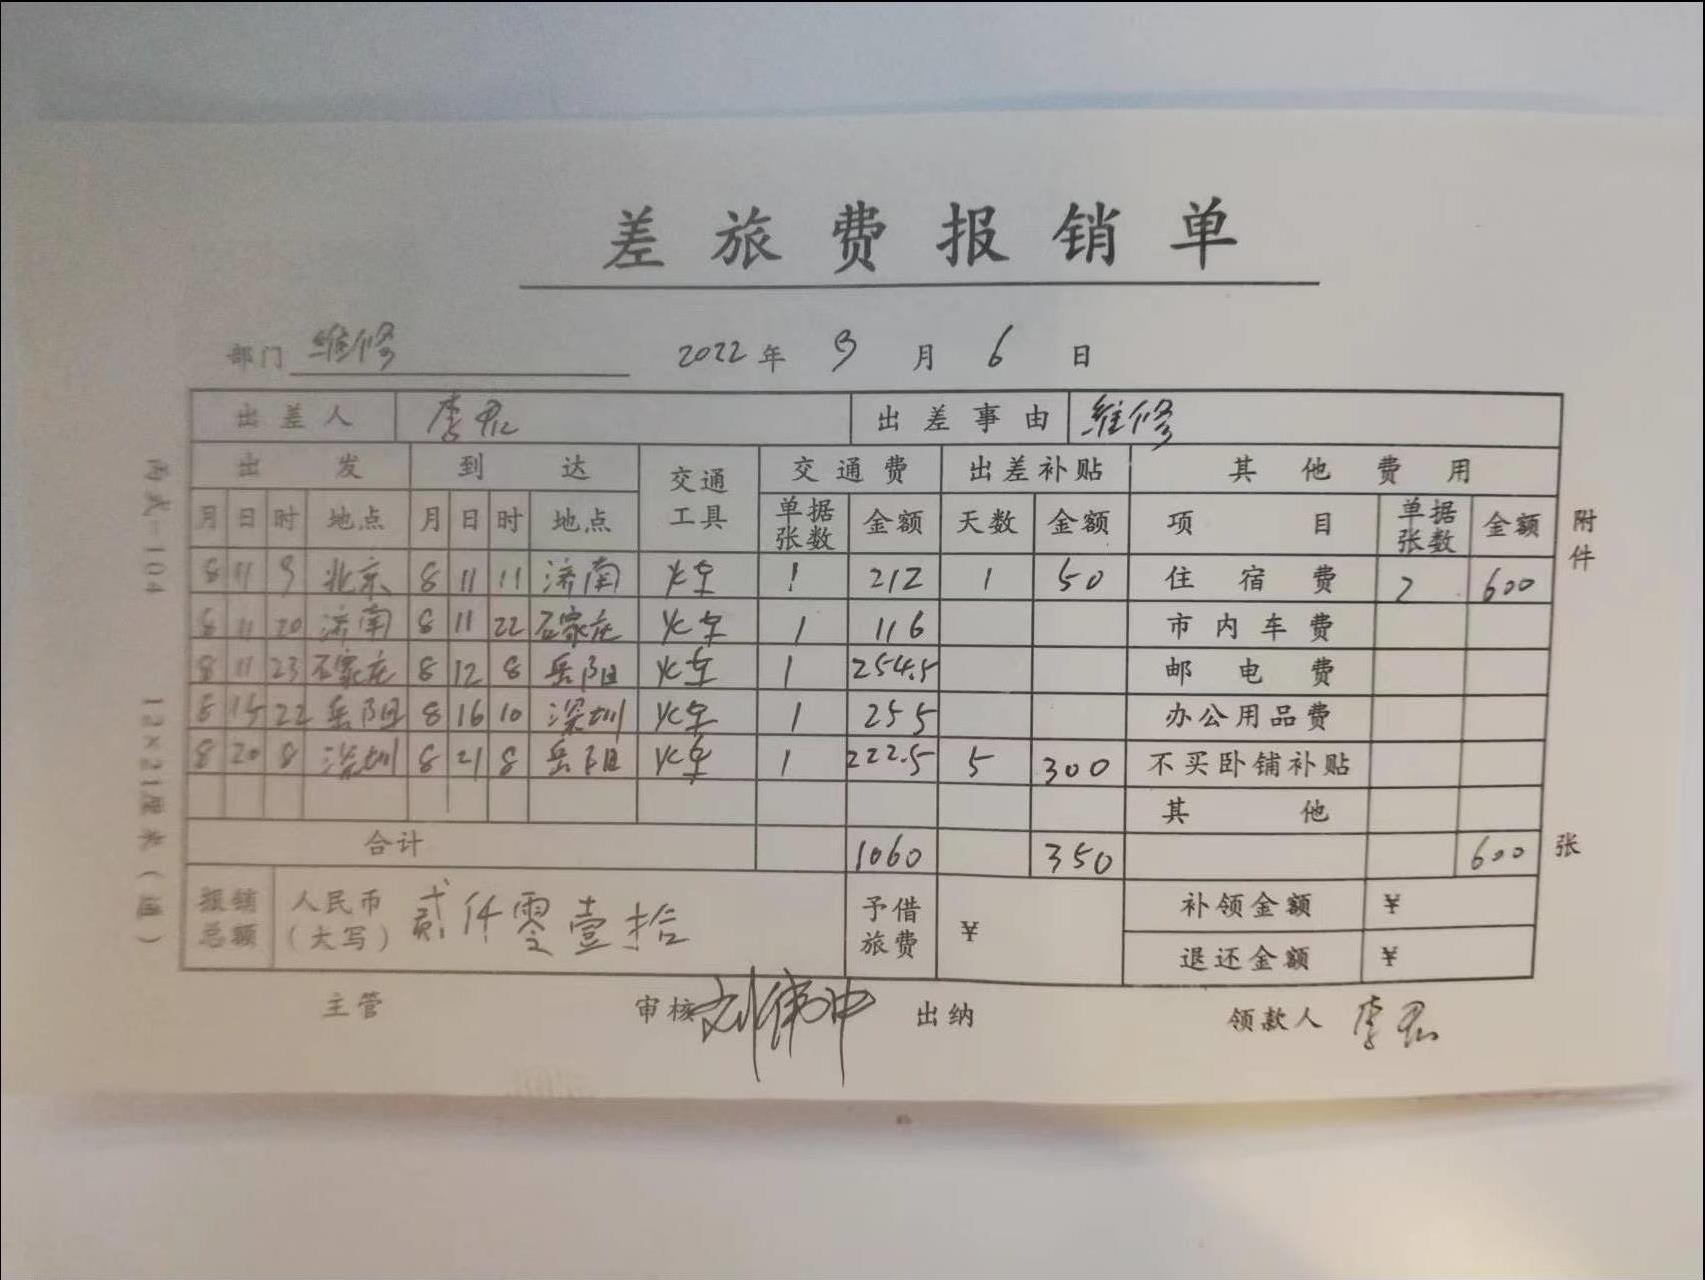 差旅费报销单
部门 维修 2022 年 9 月 6 日
出差人 李君 出差事由 维修
出发 到达 交通工具 交通费 出差补贴 其他费用
月 日 时 地点 月 日 时 地点 单据张数 金额 天数 金额 项目 单据张数 金额
8 11 9 北京 8 11 11 济南 火车 1 212 1 50 住宿费 2 600
8 11 20 济南 8 11 22 石家庄 火车 1 116 市内车费
8 11 23 石家庄 8 12 8 岳阳 火车 1 254.5 邮电费
8 15 22 岳阳 8 16 10 深圳 火车 1 255 办公用品费
8 20 8 深圳 8 21 8 岳阳 火车 1 222.5 5 300 不买卧铺补贴
其他
合计 1060 350 600
报销总额 人民币(大写) 贰仟零壹拾 予借旅费 ¥ 补领金额 ¥
退还金额 ¥
主管 审核 刘伟中 出纳 领款人 李君
附件 张
丙式-104 12×21厘米(通)